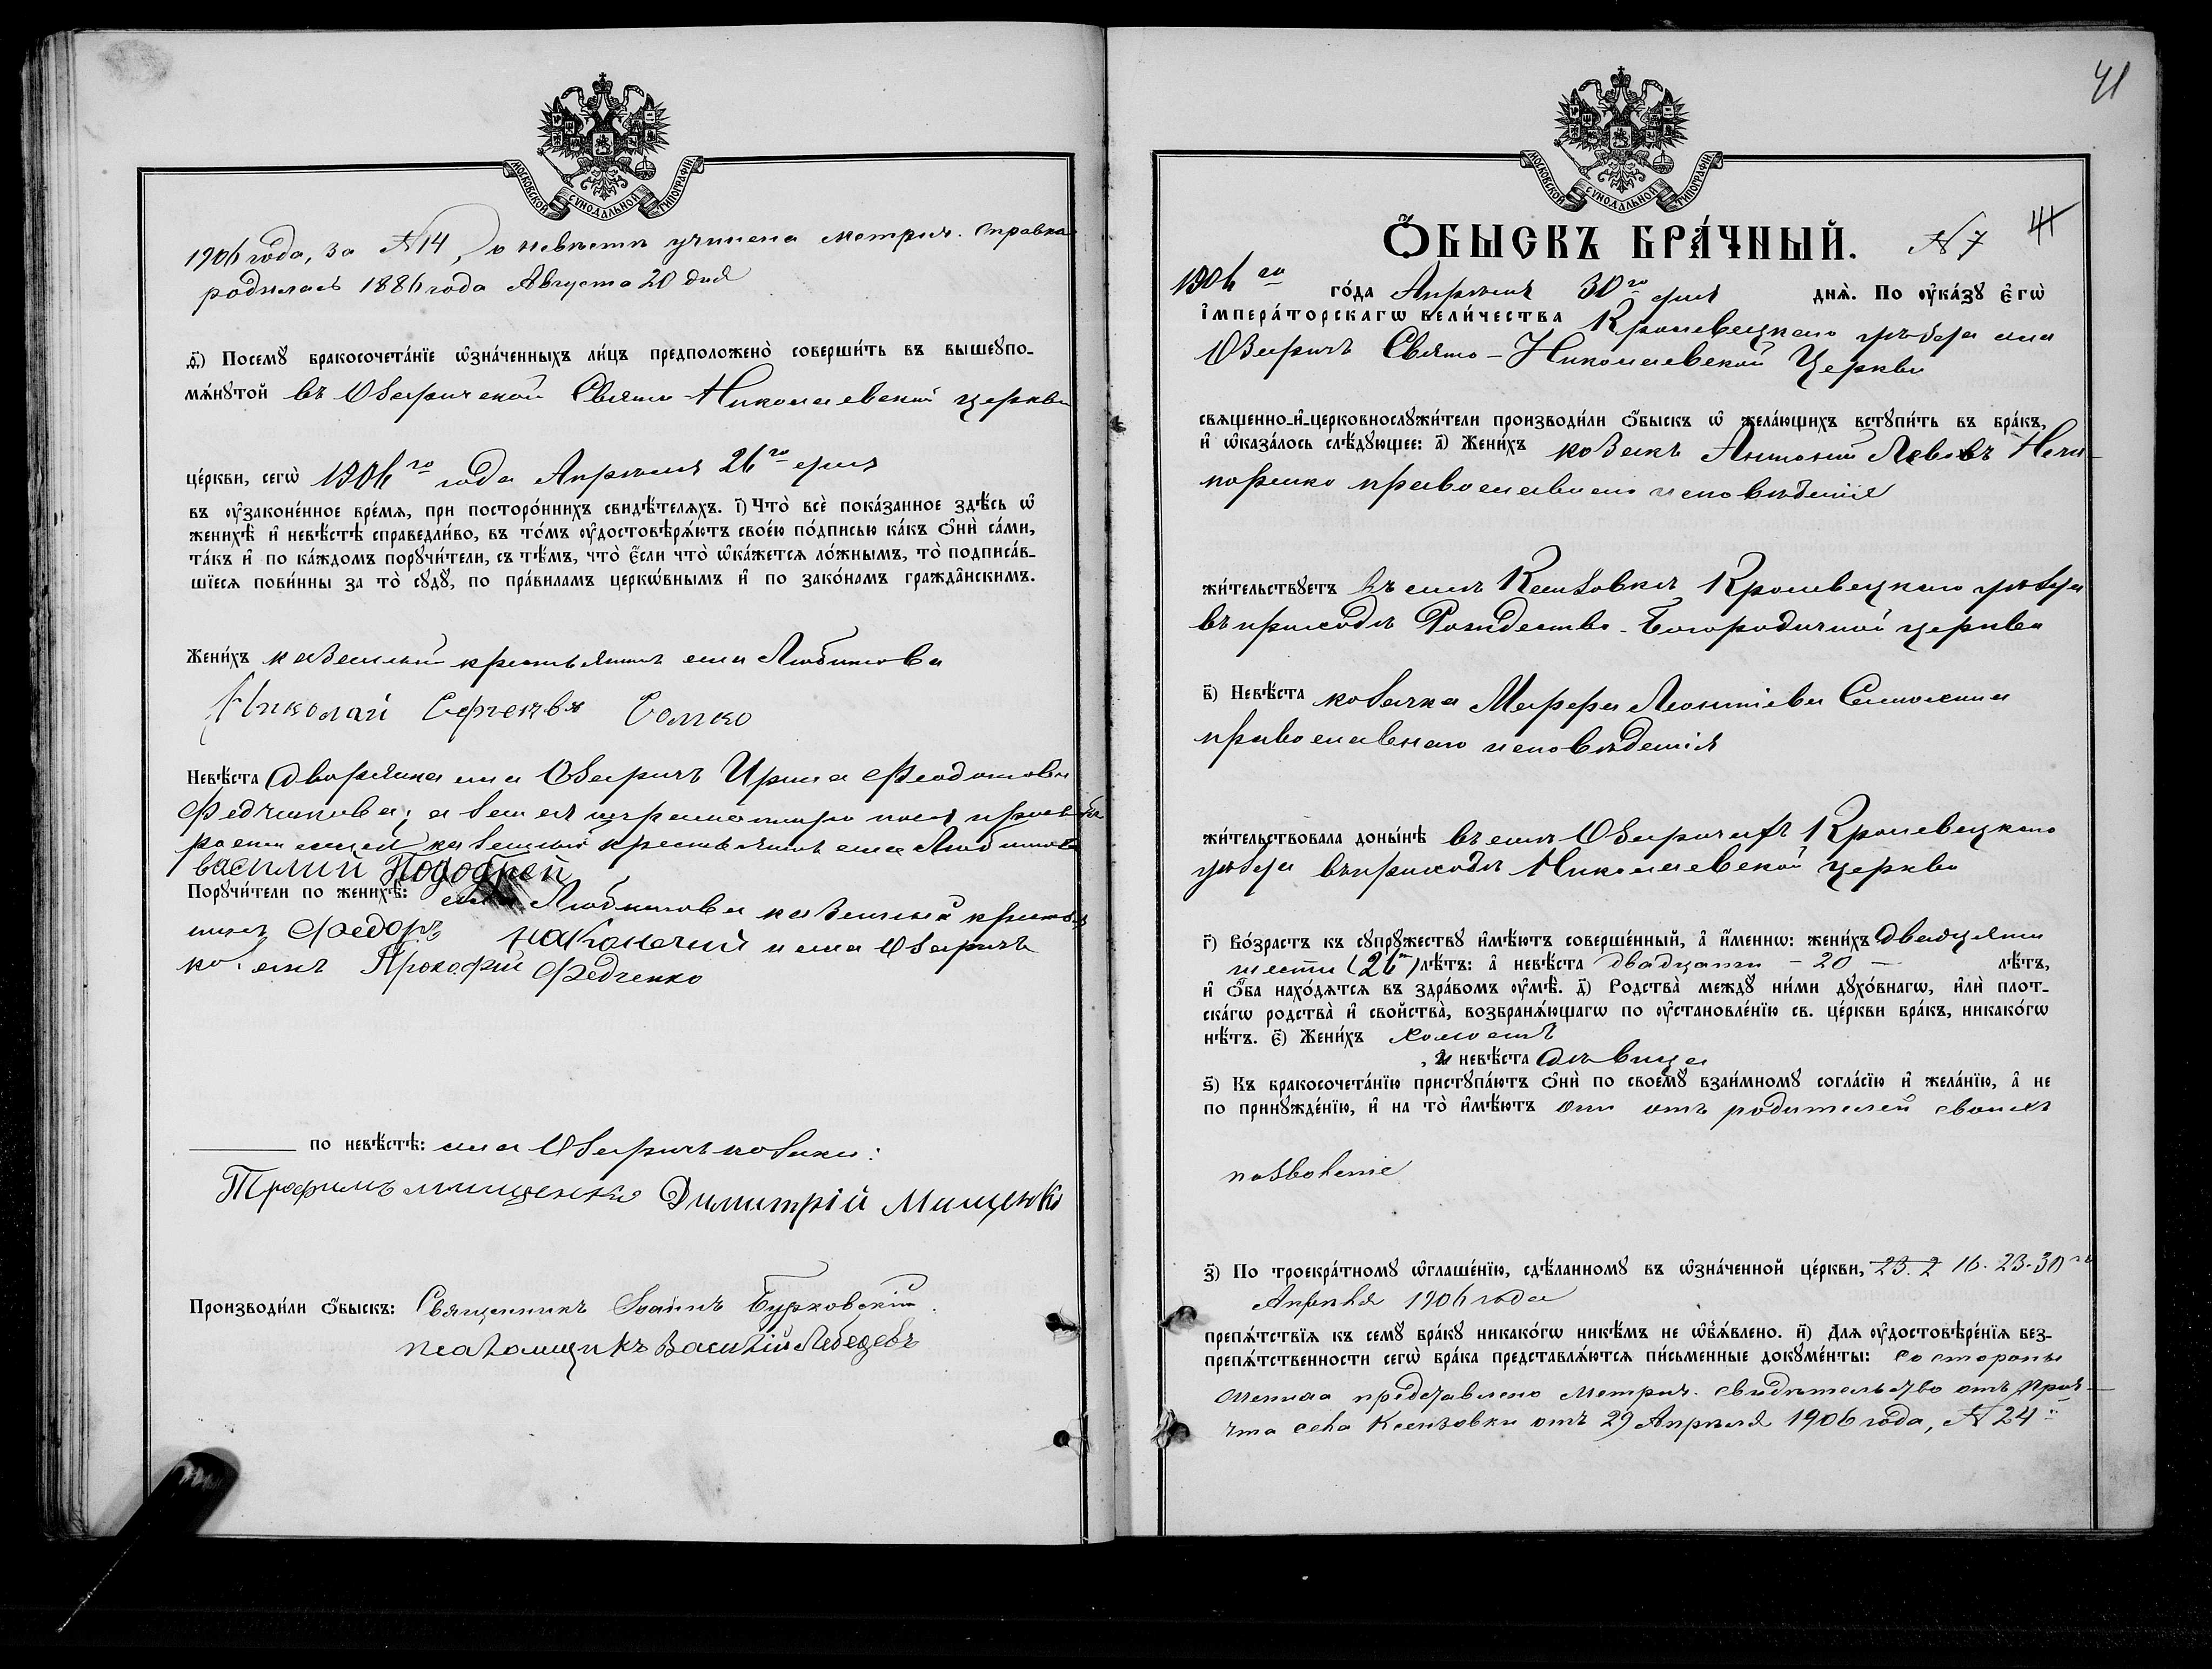 МОСКОВСКОЙ СѴНОДАЛЬНОЙ ТИПОГРАФІИ
1906 года, за N 14, о невѣстѣ учинена метрич. справка
родилась 1886 года Августа 20 дня
д҃) Посемꙋ̀ бракосочета́нїе ѡ҆зна́ченныхъ ли́цъ предположено̀ соверши́ть въ вышеꙋпо-
мѧ́нꙋтой въ Озаричской Свято-Николаевской церкви
це́ркви, сегѡ̀ 1906 го года Апрѣля 26 го дня
въ ᲂу҆законе́нное вре́мѧ, при посторо́ннихъ свидѣ́телѧхъ. і҃) Что̀ всѐ пока́занное здѣ́сь ѡ҆
женихѣ̀ и҆ невѣ́стѣ справедли́во, въ то́мъ ᲂу҆достовѣрѧ́ютъ свое́ю по́дписью ка́къ ѻ҆нѝ са́ми,
та́къ и҆ по ка́ждомъ порꙋчи́тели, съ тѣ́мъ, что̀ є҆́сли что̀ ѡ҆ка́жетсѧ ло́жнымъ, то̀ подписа́в-
шїесѧ пови́нны за то̀ сꙋдꙋ̀, по пра́виламъ церкѡ́внымъ и҆ по зако́намъ гражда̑нскимъ.
Жени́хъ казенный крестьянинъ села Любитова
Николай Сергеевъ
Невѣ́ста Дворянка села Озаричъ Ирина Феодотова
Федченкова; а за нея неграмотную по ея прозьбѣ
росписался казенный крестьянинъ села Любитова
василий
Порꙋчи́тели по женихѣ̀: села Любитова казенный крестья
нинъ Федоръ Наконечний и села Озаричъ
козакъ Прокофий Федченко
по невѣ́стѣ: села Озаричъ козаки:
Трофимъ мищенко Димитрій Мищенко
Производи́ли ѻ҆́быскъ: Священникъ Іоаннъ Бурковскій.
псаломщикъ Василій Лебедевъ
41
МОСКОВСКОЙ СѴНОДАЛЬНОЙ ТИПОГРАФІИ
Ѻ҆́БЫСКЪ БРА́ЧНЫЙ. N 7
1906 го го́да Апрѣля 30 го дня днѧ̀. По ᲂу҆ка́зꙋ є҆гѡ̀
і҆мпера́торскагѡ вели́чества Кролевецкаго уѣзда села
Озаричъ Свято-Николаевской Церкви
свѧщенно-и҆-церковнослꙋжи́тели производи́ли ѻ҆́быскъ ѡ҆ жела́ющихъ встꙋпи́ть въ бра́къ,
и҆ ѡ҆каза́лось слѣ́дꙋющее: а҃) Жени́хъ козакъ Антоній Левовъ Нечи-
поренко православнаго исповѣданія
жи́тельствꙋетъ въ селѣ Ксензовкѣ Кролевецкаго уѣзда
въ приходѣ Рождество-Богородичной церкви
в҃) Невѣ́ста козачка Марфа Леонтіева
православнаго исповѣданія
жи́тельствовала доны́нѣ въ селѣ Озаричахъ Кролевецкаго
уѣзда въ приходѣ Николаевской церкви
г҃) Во́зрастъ къ сꙋпрꙋ́жествꙋ и҆мѣ́ютъ соверше́нный, а҆ и҆́меннѡ: жени́хъ двадцати
шести (26) лѣ́тъ: а҆ невѣ́ста двадцати - 20 - лѣ́тъ,
и҆ ѻ҆́ба нахо́дѧтсѧ въ здра́вомъ ᲂу҆мѣ̀. д҃) Родства̀ междꙋ̀ ни́ми дꙋхо́внагѡ, и҆лѝ плот-
ска́гѡ родства̀ и҆ сво́йства̀, возбранѧ́ющагѡ по ᲂу҆становле́нїю св. це́ркви бра́къ, никако́гѡ
нѣ́тъ. є҃) Жени́хъ холостъ
, а невѣ́ста дѣвица
ѕ҃) Къ бракосочета́нїю пристꙋпа́ютъ ѻ҆нѝ по своемꙋ̀ взаи́мномꙋ согла́сїю и҆ жела́нїю, а҆ не
по принꙋжде́нїю, и҆ на то̀ и҆мѣ́ютъ они отъ родителей своихъ
позволение
з҃) По троекра́тномꙋ ѡ҆глаше́нїю, сдѣ́ланномꙋ въ ѡ҆зна́ченной це́ркви, 23. 2 16. 23. 30 го
Апрѣля 1906 года
препѧ́тствїѧ къ семꙋ̀ бра́кꙋ никако́гѡ никѣ́мъ не ѡ҆б̾ѧ́влено. и҃) Длѧ ᲂу҆достовѣре́нїѧ без-
препѧ́тственности сегѡ̀ бра́ка представлѧ́ютсѧ пи́сьменные докꙋме́нты: со стороны
жениха представлено метрич. свидѣтельство отъ прич-
та села Ксензовки отъ 29 Апрѣля 1906 года, N 24